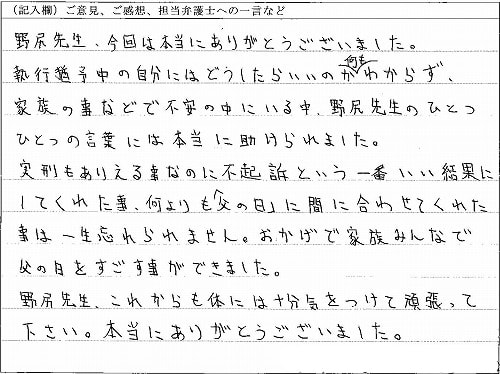 （記入欄）ご意見、ご感想、担当弁護士への一言など
野尻先生、今回は本当にありがとうございました。
執行猶予中の自分にはどうしたらいいのか何もわからず、
家族の事などで不安の中にいる中、野尻先生のひとつ
ひとつの言葉には本当に助けられました。
実刑もありえる事なのに不起訴という一番いい結果に
してくれた事、何よりも「父の日」に間に合わせてくれた
事は一生忘れられません。おかげで家族みんなで
父の日をすごす事ができました。
野尻先生、これからも体には十分気をつけて頑張って
下さい。本当にありがとうございました。